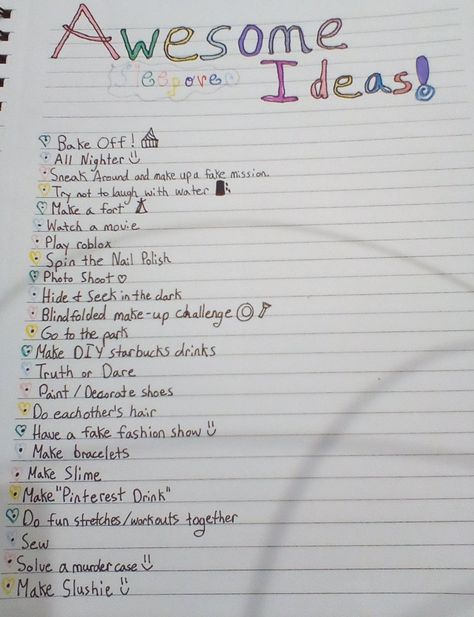 Awesome
Sleepover
Ideas!
Bake Off!
All Nighter
Sneak Around and make up a fake mission.
Try not to laugh with water
Make a fort
Watch a movie
Play roblox
Spin the Nail Polish
Photo Shoot
Hide & Seek in the dark
Blindfolded make-up challenge
Go to the park
Make DIY starbucks drinks
Truth or Dare
Paint / Decorate shoes
Do eachother's hair
Have a fake fashion show
Make bracelets
Make Slime
Make "Pinterest Drink"
Do fun stretches/workouts together
Sew
Solve a murder case
Make Slushie